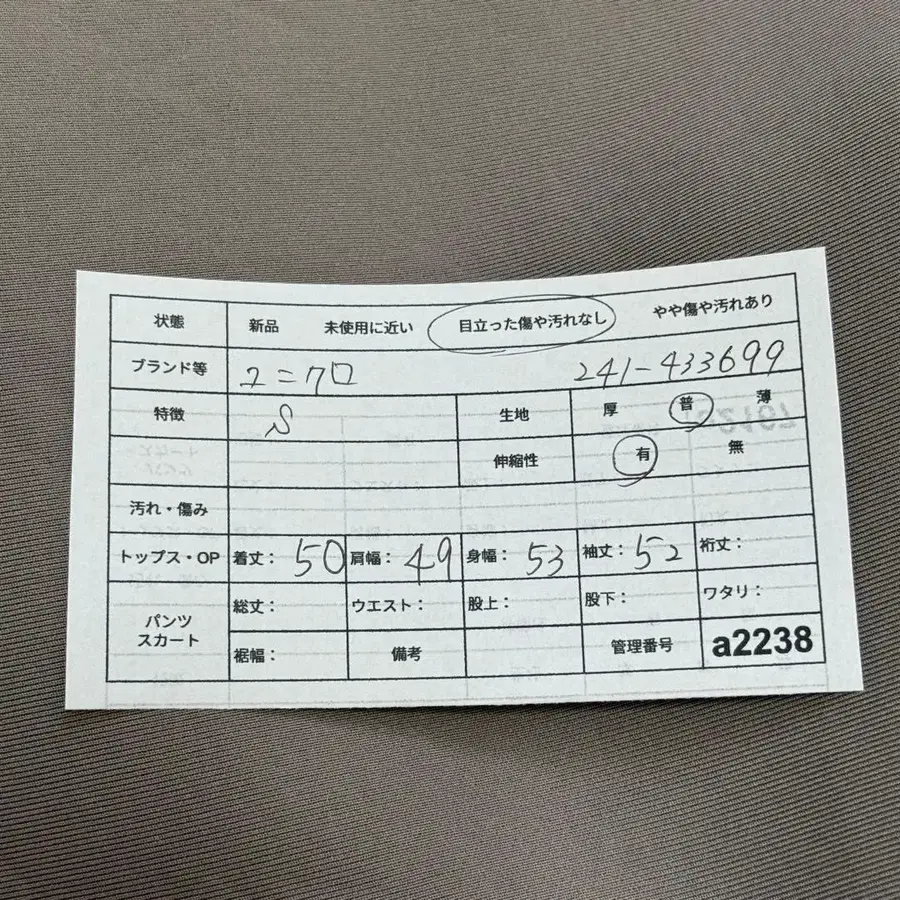 状態 新品 未使用に近い 目立った傷や汚れなし やや傷や汚れあり
ブランド等 ユニクロ 241-433699
特徴 S 生地 厚 普 薄
伸縮性 有 無
汚れ・傷み
トップス・OP 着丈: 50 肩幅: 49 身幅: 53 袖丈: 52 裄丈:
パンツ スカート 総丈: ウエスト: 股上: 股下: ワタリ:
裾幅: 備考 管理番号 a2238